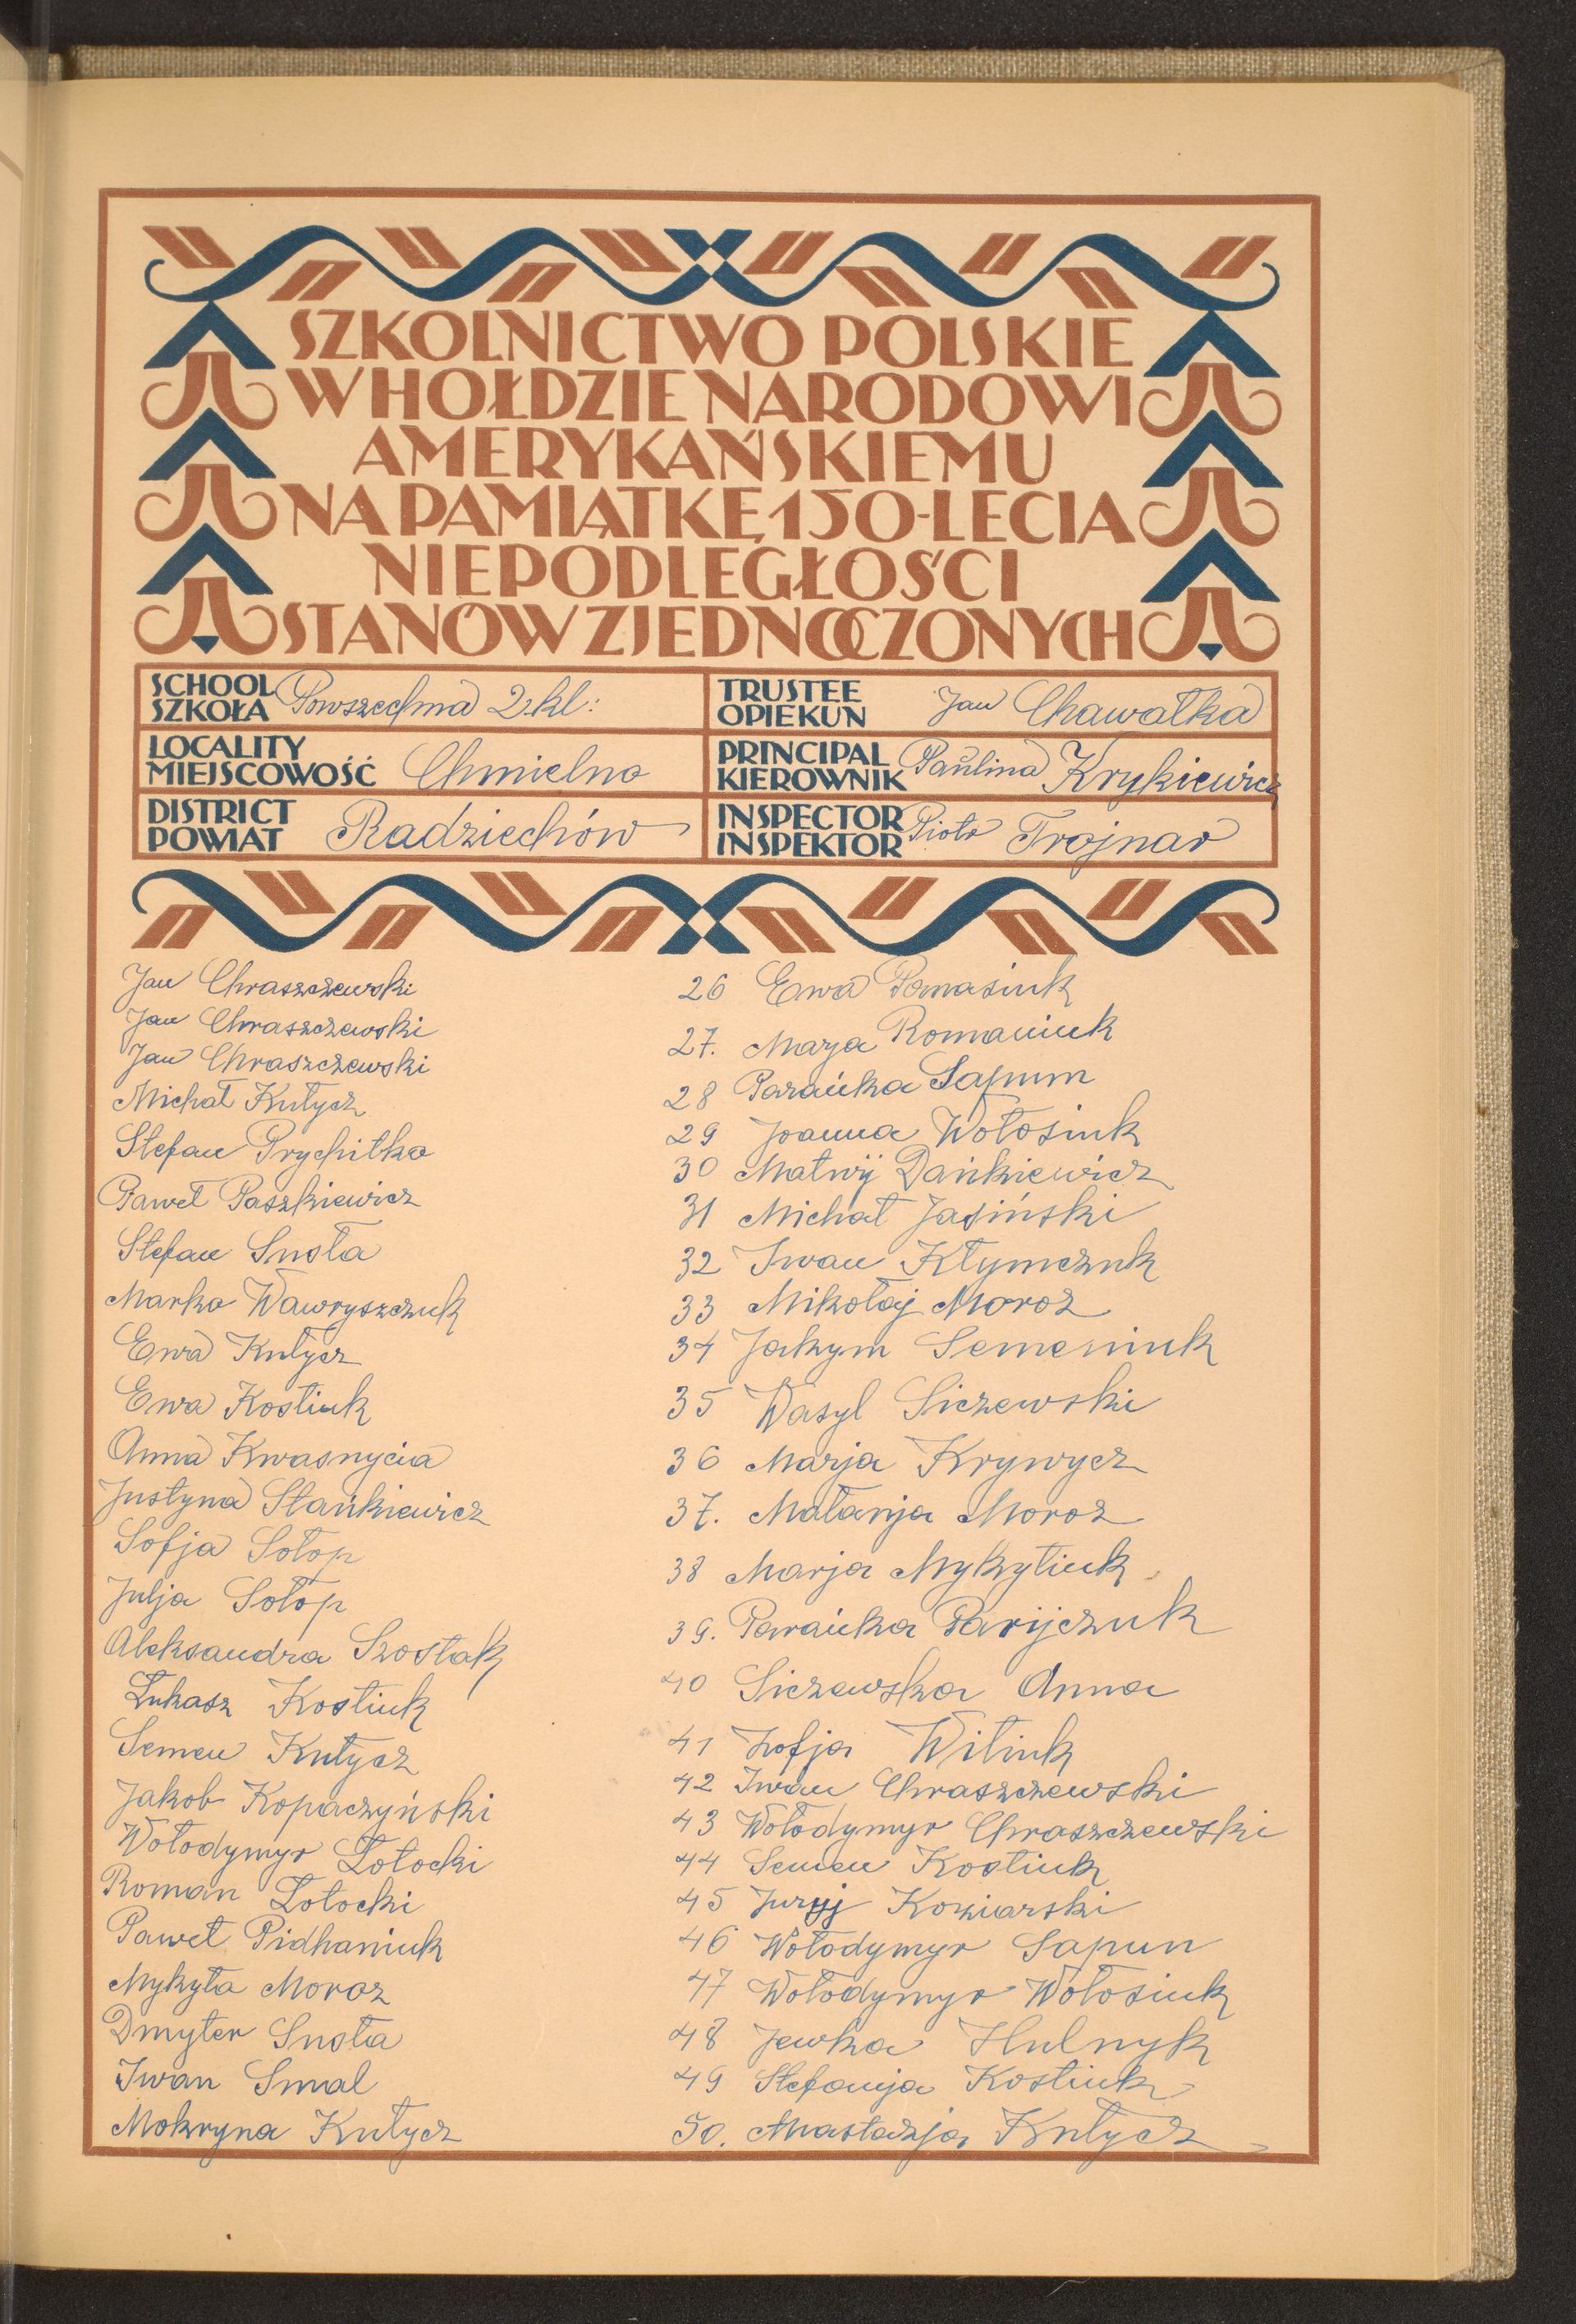 SZKOLNICTWO POLSKIE
W HOŁDZIE NARODOWI
AMERYKAŃSKIEMU
NA PAMIĄTKĘ 150-LECIA
NIEPODLEGŁOŚCI
STANÓW ZJEDNOCZONYCH
SCHOOL
SZKOŁA Powszechna 2 kl:
TRUSTEE
OPIEKUN Jan Chawałka
LOCALITY
MIEJSCOWOŚĆ Chmielno
PRINCIPAL
KIEROWNIK Paulina Krykiewicz
DISTRICT
POWIAT Radziechów
INSPECTOR
INSPEKTOR Piotr Trojnar
Jan Chraszczewski
Jan Chraszczewski
Jan Chraszczewski
Michał Kułycz
Stefan Prychitko
Paweł Paszkiewicz
Stefan Snoła
Marko Wawryszczuk
Ewa Kułycz
Ewa Kostiuk
Anna Kwasnycia
Justyna Stańkiewicz
Sofja Sołop
Julja Sołop
Aleksandra Szostak
Łukasz Kostiuk
Semen Kułycz
Jakób Kopaczyński
Wołodymyr Łotocki
Roman Łotocki
Paweł Pidhaniuk
Mykyta Moroz
Dmyter Snoła
Iwan Smal
Mokryna Kułycz
26 Ewa Pomasiuk
27. Marja Romaniuk
28 Parańka Sapun
29 Joanna Wołosiuk
30 Matwij Dańkiewicz
31 Michał Jasiński
32 Iwan Kłymczuk
33 Mikołaj Moroz
34 Jakym Semeniuk
35 Wasyl Siczewski
36 Marja Krywycz
37. Małanja Moroz
38 Marja Mykytiuk
39. Parańka Parijczuk
40 Siczewska Anna
41 Zofja Witiuk
42 Iwan Chraszczewski
43 Wołodymyr Chraszczewski
44 Semen Kostiuk
45 Juryj Kowiarski
46 Wołodymyr Sapun
47 Wołodymyr Wołosiuk
48 Jewka Hulnyk
49 Stefanja Kostiuk
50. Anastazja Kułycz